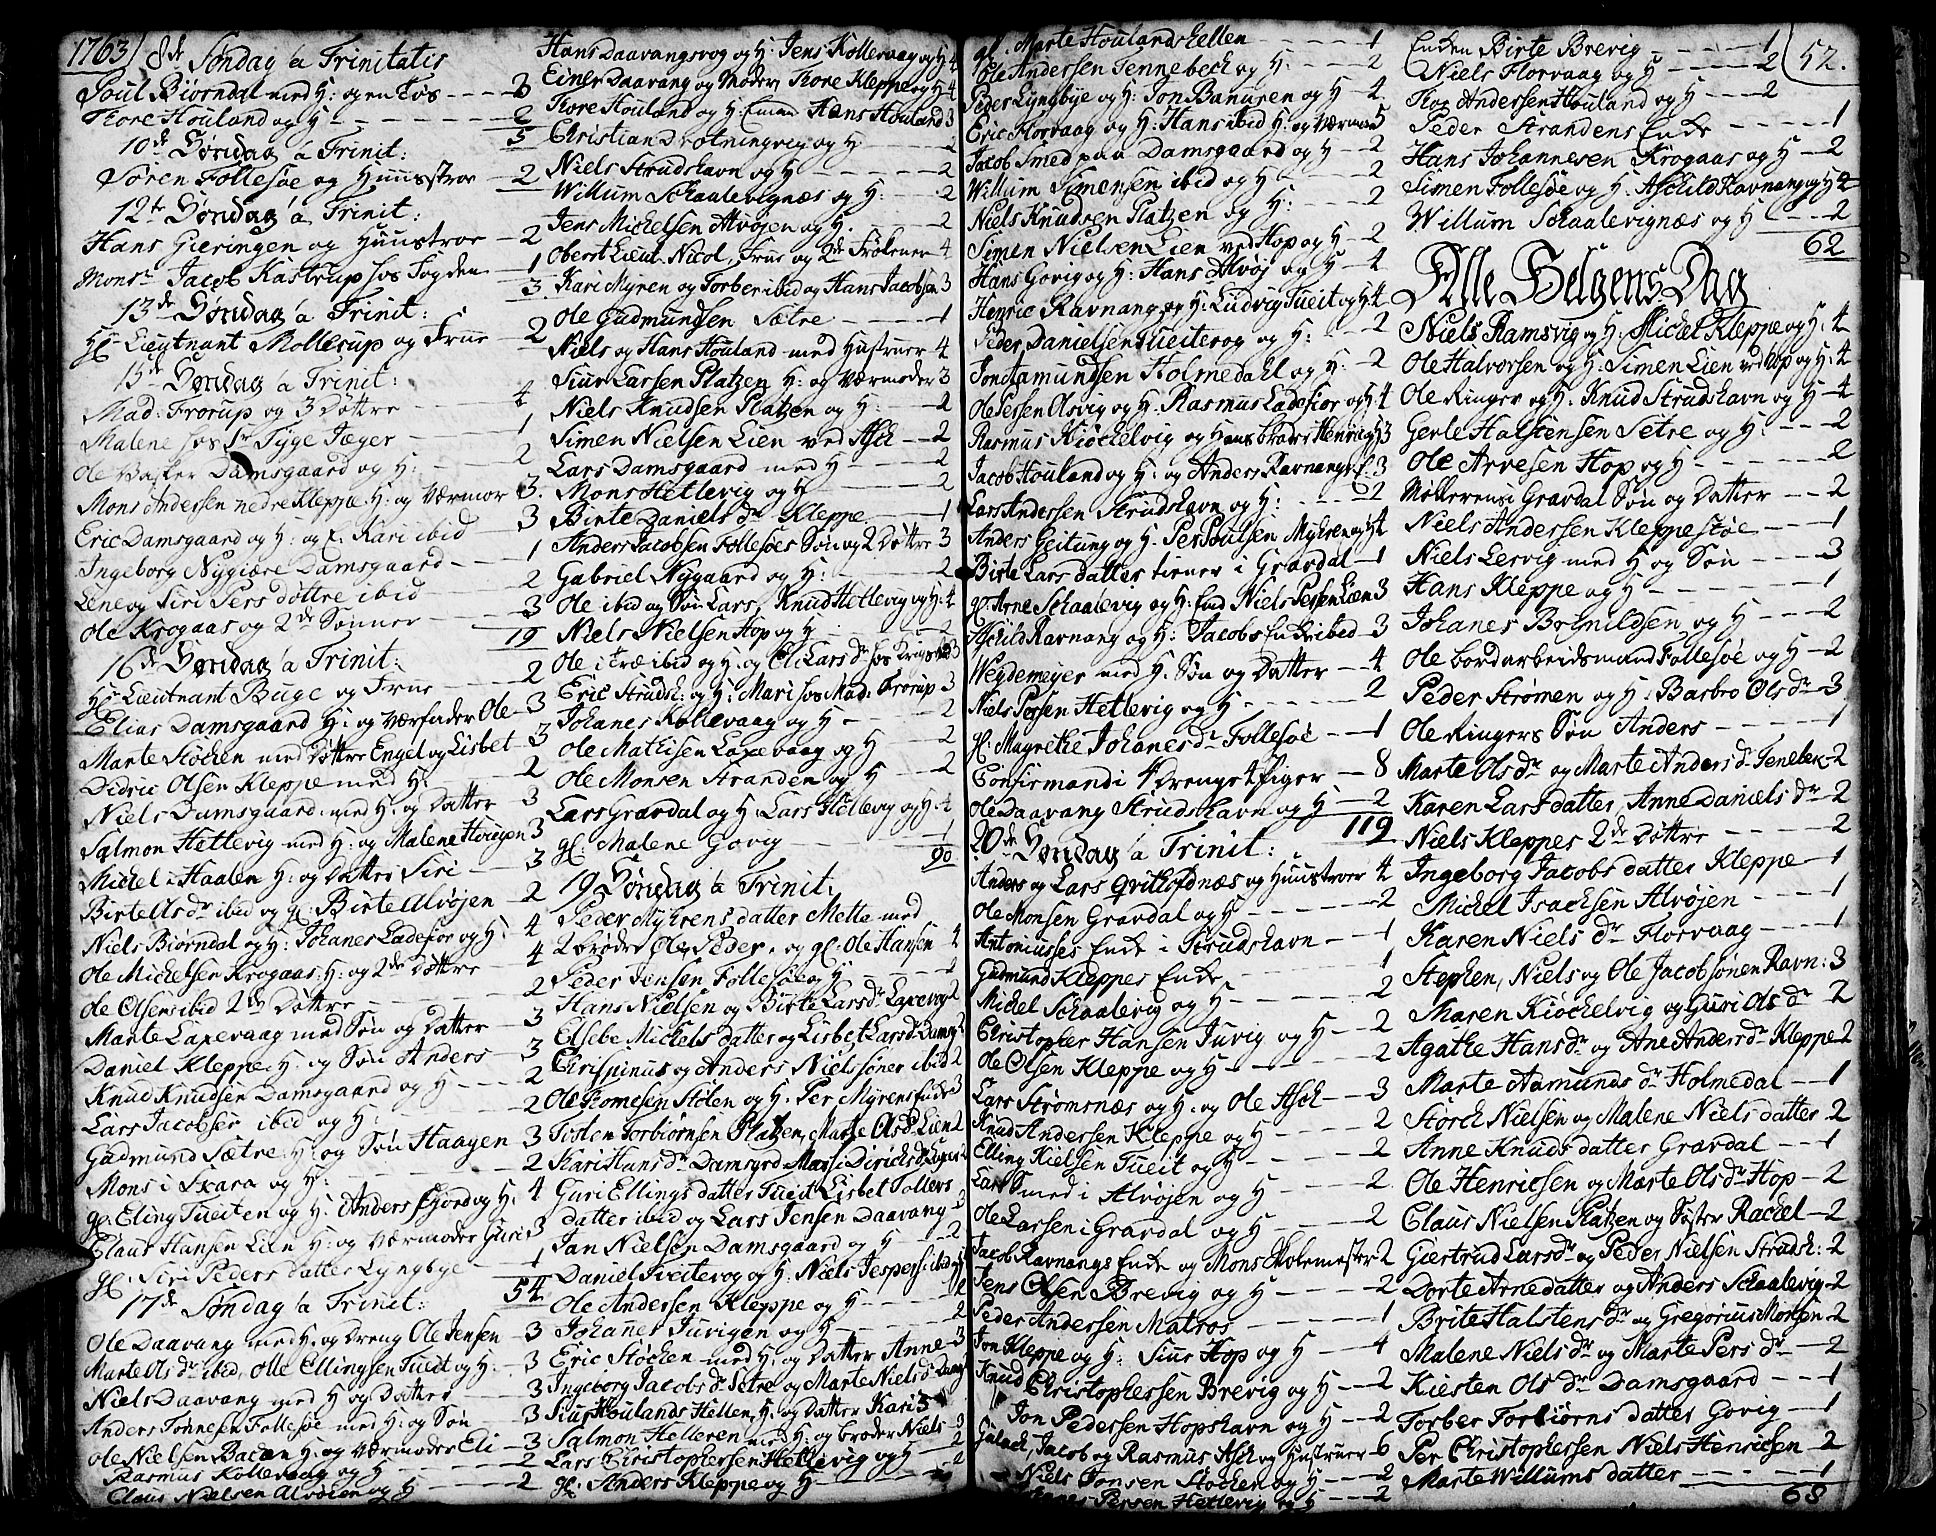 1763
8de Søndag á Trinitatis
Poul Biørndal med H: og en Tøs - - 3
Thore Houland og H - - - 2
5
10de Søndag á Trinit:
Søren Follesøe og Huustroe - 2
12te Søndag á Trinit:
Hans Gieringen og Huustroe - 2
Monsr Jacob Kastrup hos Fogden - 1
3
13de Søndag á Trinit:
Hr Lieutnant Mollerup og Frue - 2
15de Søndag á Trinit:
Mad: Frorup og 3 Døttre - 4
Malene hos Sr Tyge Jæger - 1
Ole Damsgaard og H: - 2
Mons Andersen nedre Kleppe H: og Værmor 3
Eric Damsgaard og H: og Kari ibid 3
Ingeborg Nygiære Damsgaard - 1
Lene og Siri Pers døttre ibid - 2
Ole Krogaas og 2de Sønner - 3
19
16de Søndag á Trinit:
Hr Lieutnant Buge og Frue - 2
Elias Damsgaard H: og Værfader Ole - 3
Marte Støchen med Døttre Engel og Lisbet 3
Didric Olsen Kleppe med H: 2
Niels Damsgaard med H: og Datter - 3
Salmon Hetlevig med H: og Malene 3
Michel i Haalen H: og Datter Siri - 3
Birte Olsdr ibid og gl: Birte Alvøjen 2
Niels Biørndal og H: Johanes Ladefior og H: 4
Ole Michelsen Krogaas H: og 2de Døttre 4
Ole Olsens ibid 2de Døttre - 2
Marte Laxevaag med Søn og Datter - 3
Daniel Kleppe H: og Søn Anders 3
Knud Knudsen Damsgaard og H - 2
Lars Jacobsen ibid og H: - 2
Gudmund Sætre H: og Søn Haagen 3
Mons i Skara og H: - 2
gl: Eling Tueiten og H: Anders Fjord og H: 4
Claus Hansen Lien H: og Værmoder Guri 3
gl: Siri Peders datter Lyngbye - 1
54
17de Søndag á Trinit:
Ole Daavang med H: og Dreng Ole Jensen - 3
Marte Olsdr ibid, Ole Ellingsen Tueit og H: 3
Niels Daavang med H og Datter - 3
Anders Tønnesen Follesøe med H: og Søn - 3
Ole Nielsen Bachen H: og Værmoder Eli - 3
Rasmus Kollevaag og H - 2
Claus Nielsen Alvøien og H - 2
Hans Daavangsvog og H: Jens Kollevaag og H 4
Einer Daavang og Moder, Thore Kleppe og H 4
Thore Houland og H: Hans Houland 3
Christian Drotningvig og H - 2
Niels Strudshavn og H - 2
Willum Schaalevignæs og H: - 2
Jens Michelsen Alvøjen og H. - 2
Oberst Lieut: Nicol, Frue og 2de Frøkener 4
Kari Myren og Torber ibid og Hans Jacobsen 3
Ole Gudmundsen Sætre - 1
Niels og Hans Houland med Hustruer 4
Siur Larsen Platzen H: og Værmoder 3
Niels Knudsen Platzen og H: - 2
Simen Nielsen Lien ved Ask - 2
Lars Damsgaard med H - 2
Mons Hetlevig og H - 2
Birte Daniels dr Kleppe - 1
Anders Jacobsen Follesøes Søn og 2 Døttre 3
Gabriel Nygaard og H: - 2
Ole ibid og Søn Lars, Knud Hetlevig og H: 4
Niels Nielsen Hop og H - 2
Ole i træ ibid og H: og Eli Lars dr hos 3
Eric Strudsh: og H: Mari hos Mad: Frorup 3
Johanes Kollevaag og H - 2
Ole Mathisen Laxevaag og H - 2
Ole Monsen Stranden og H - 2
Lars Gravdal og H: Lars Hetlevig og H: 4
gl: Malene Govig - 1
90
19 Søndag á Trinit:
Peder Myhrens datter Mette med
2 brødre Ole Peder, og gl: Ole Hansen 4
Peder Jensen Follesøe og H - 2
Hans Nielsen og Birte Larsdr Laxevog 2
Elsebe Michels datter og Lisbet Larsdr Damsg 2
Chrispinus og Anders Nielssøner ibid 2
Ole Tomesen Stølen og H: Per Myrens Enke 3
Tosten Torbiørnsen Platzen, Marte Olsdr Lien 2
Kari Hansdr Damsgrd Mari Dirichsdr 2
Guri Ellings datter Tueit Lisbet Tollevs
datter ibid og Lars Jensen Daavang 3
Jan Nielsen Damsgaard og H - 2
Daniel Tveiterog og H: Niels Jespers: ibid og H
Ole Andersen Kleppe og H - 2
Johanes Juvigen og H - 2
Eric Støchen med H: og Datter Anne 3
Ingeborg Jacobs dr Setre og Marte Niels dr
Siur Houlands Hellen, H: og Datter Kari 3
Salmon Helleren med H: og broder Niels 3
Lars Christophersen Hetlevig og H - 2
gl: Anders Kleppe og H - 2
gl. Marte Houlandshellen - 1
Ole Andersen Tennebech og H: - 2
Peder Lyngbye og H: Jon Banuren og H - 4
Eric Florvaag og H: Hans ibid H: og Værmor 5
Jacob Smed paa Damsgaard og H - 2
Willum Simensen ibid og H - 2
Niels Knudsen Platzen og H: - 2
Simen Nielsen Lien ved Hop og H - 2
Hans Govig og H: Hans Alvøj og H - 4
Henric Ravnang og H: Ludvig Tueit og H: 4
Peder Danielsen Tueiterog og H: - 2
Jon Aamundsen Holmedahl og H: - 2
Ole Persen Olsvig og H: Rasmus Ladefior og H 4
Rasmus Kiøchelvig og Hans broder Henric 3
Jacob Houland og H: og Anders Ravnangs E. 3
Lars Andersen Strudshavn og H: - 2
Anders Geitung og H: Per Poulsen Myhren og H 4
Birte Lars datter tiener i Gravdal - 1
gl: Arne Schaalevig og H: Niels Persen Lien 3
Aschild Ravnang og H: Jacobs Enke ibid - 3
Weydemeyer med H: Søn og Datter - 4
Niels Persen Hetlevig og H - 2
gl: Magrethe Johanes dr Follesøe - 1
Confirmandi 4 Drenge 4 Piger - 8
Ole Daavang Strudshavn og H - 2
119
20de Søndag á Trinit:
Anders og Lars Qvitlofdnæs og Huustroer 4
Ole Monsen Gravdal og H - 2
Antoniusses Enke i Strudshavn - 1
Gudmund Kleppes Enke - 1
Michel Schaalevig og H - 2
Christopher Hansen Juvig og H - 2
Ole Olsen Kleppe og H - 2
Lars Strømsnæs og H: og Ole Asch - 3
Knud Andersen Kleppe og H - 2
Elling Nielsen Tueit og H - 2
Lars Smed i Alvøjen og H - 2
Ole Larsen i Gravdal og H - 2
Jacob Ravnangs Enke og Mons Skolemester 2
Jens Olsen Brevig og H - 2
Peder Andersen Matros - 1
Jon Kleppe og H: Siur Hop og H - 4
Knud Christophersen Brevig og H - 2
Jon Pedersen Hopshavn og H - 2
Gulach, Jacob og Rasmus Ask og Hustruer 6
Niels Jonsen Støchen og H - 2
Johanes Persen Hetlevig og H - 2
52.
Enken Birte Brevig - 1
Niels Florvaag og H - 2
Thor Andersen Houland og H - 2
Peder Strandens Enke - 1
Hans Johannesen Krogaas og H - 2
Simen Follesøe og H: Aschild Ravnang og H 4
Willum Schaalevignæs og H - 2
62
Alle Helgens Dag
Niels Ramsvig og H: Michel Kleppe og H: 4
Ole Halvorsen og H: Simen Lien ved Hop og H: 4
Ole Ringer og H: Knud Strudshavn og H - 4
Gerle Halstensen Setre og H: - 2
Ole Arvesen Hop og H - 2
Møllerens i Gravdal Søn og Datter - 2
Niels Andersen Kleppestøe - 1
Niels Lervig med H og Søn - 3
Hans Kleppe og H - 1
Johanes Botnildsen og H - 2
Ole bordarbeidsmand Follesøe og H - 2
Peder Strømen og H: Barbro Olsdr - 3
Ole Ringers Søn Anders - 1
Marte Olsdr og Marte Anders dr Tenebek - 2
Karen Lars datter, Anne Daniels dr - 2
Niels Kleppes 2de Døttre - 2
Ingeborg Jacobs datter Kleppe - 1
Michel Isachsen Alvøjen - 1
Karen Niels dr Florvaag - 1
Stephen, Niels og Ole Jacobsønen Ravn: 3
Maren Kiøchelvig og Guri Ols dr 2
Agathe Hansdr og Ane Andersdr Kleppe 2
Marte Aamunds dr Holmedal - 1
Storch Nielsen og Malene Niels datter - 2
Anne Knuds datter Gravdal - 1
Ole Henricsen og Marte Olsdr Hop - 2
Claus Nielsen Platzen og Søster Rachel - 2
Giertrud Larsdr og Peder Nielsen Strudsh: - 2
Dorte Arnedatter og Anders Schaalevig - 2
Brite Halstens dr og Gregorius Monsen - 2
Malene Niels dr og Marte Pers dr - 2
Kiersten Ols dr Damsgaard - 1
Torber Torbiørns datter Govig - 1
Per Christophersen Niels Henricsen - 2
Marte Willums datter - 1
68